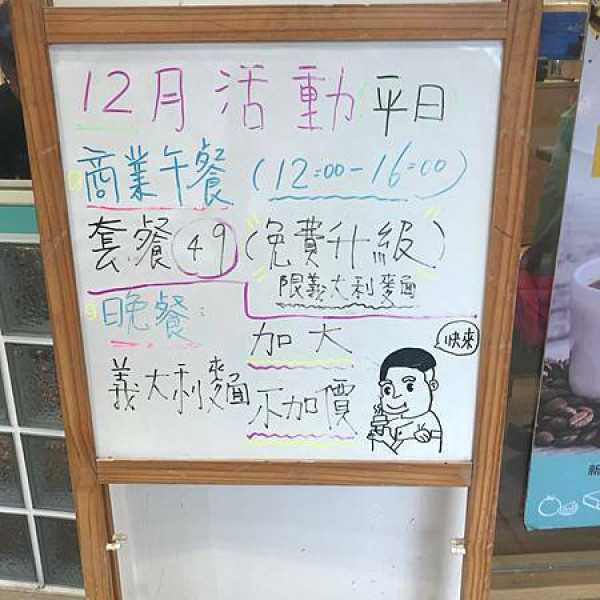 12月活動平日
商業午餐(12:00-16:00)
套餐49(免費升級)
限義大利麵
晚餐:
加大
義大利麵不加價
快來
新